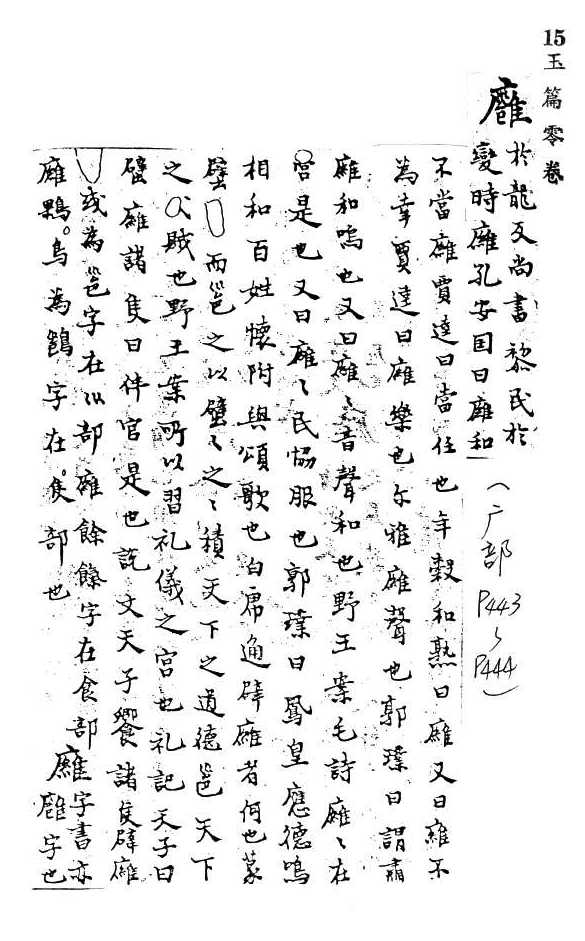 15玉篇零卷
廱
於龍反尚書黎民於
變時廱孔安囯曰廱和
不當廱賈逵曰當任也年穀和熟曰廱又曰廱不
為幸賈逵曰廱樂也尓雅廱聲也郭璞曰謂肅
廱和鳴也又曰廱〻音聲和也野王案毛詩廱〻在
宮是也又曰廱〻民協服也郭璞曰鳳皇應德鳴
相和百姓懷附與頌歌也白席通辟廱者何也蒙
璧而邕之以璧〻之〻積天下之道德邕天下
之賊也野王案所以習礼儀之宮也礼記天子曰
璧廱諸隻曰伴官是也說文天子饗諸隻辟廱
或為邕字在巛部廱餘饔字在食部
廱字書亦
廱鸅鳥為鶅字在隻部也
廱字也
(广部
P443
〜
P444)